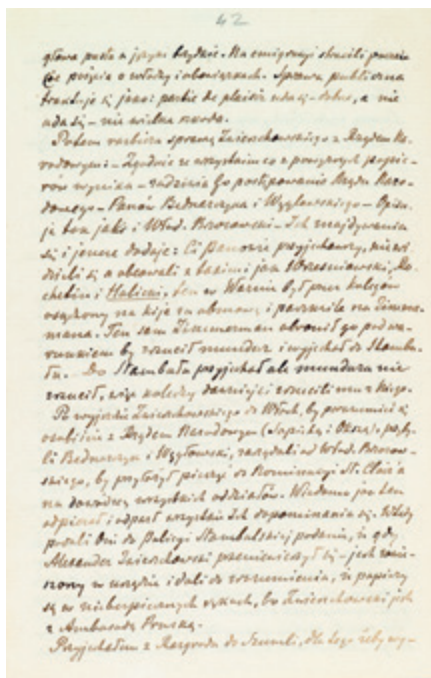 42
głowa pusta a język brzydki. Na emigracyi stracili poczucie
i pojęcie o władzy i obowiązkach. Sprawa publiczna
traktuje się jako: partie de plaisir uda się – dobrze, a nie
uda się – nie wielka szkoda.
Potem rozbiera sprawę Zwierzchowskiego z Rządem Na-
rodowym: – Zgodnie ze wszystkiem co z powyższych papie-
rów wynika – Rządu Naro-
dowego – Panów Bednarczyka i Węgłowskiego – Opisu-
je tak jako i Wład. Brzozowski – Ich znajdywania
się i jeszcze dodaje: Ci panowie przyjechawszy, nie wi-
dzieli się a obcowali z takimi jak Wrześniowski,
i Halicki, ten w Warnie był przez kolegów
osądzony na kije za obmowę i na Zimmer-
mana. Ten sam Zimmerman obronił go pod wa-
runkiem by zrzucił mundur i wyjechał do Stambu-
łu. Do Stambułu przyjechał ale mundur nie
zrzucił, więc koledzy dawniejsi zrzucili mu z niego.
Po wyjeździe Zwierzchowskiego do Włoch, by porozumieć się
osobiście z Rządem Narodowym (Sapiehą i Okszą),
li Bednarczyk i Węgłowski, zażądali od Wład. Brzozow-
skiego, by przyłożył pieczęć do Nominacyi St. Clair'a
na dowódzcę wszystkich oddziałów. Wiadomo jak ten
odpierał i odparł wszystkie Ich dopominania się. Wtedy
podali Oni do Policyi Stambulskiej podanie, iż gdy
Alexander Zwierzchowski – jest
szony w urzędzie i dali do zrozumienia, iż papiery
są w niebezpiecznych rękach, bo Zwierzchowski jest
z Ambasadą Pruską.
Przyjechałem z Razgradu do Szumli, dla tego żeby wy-